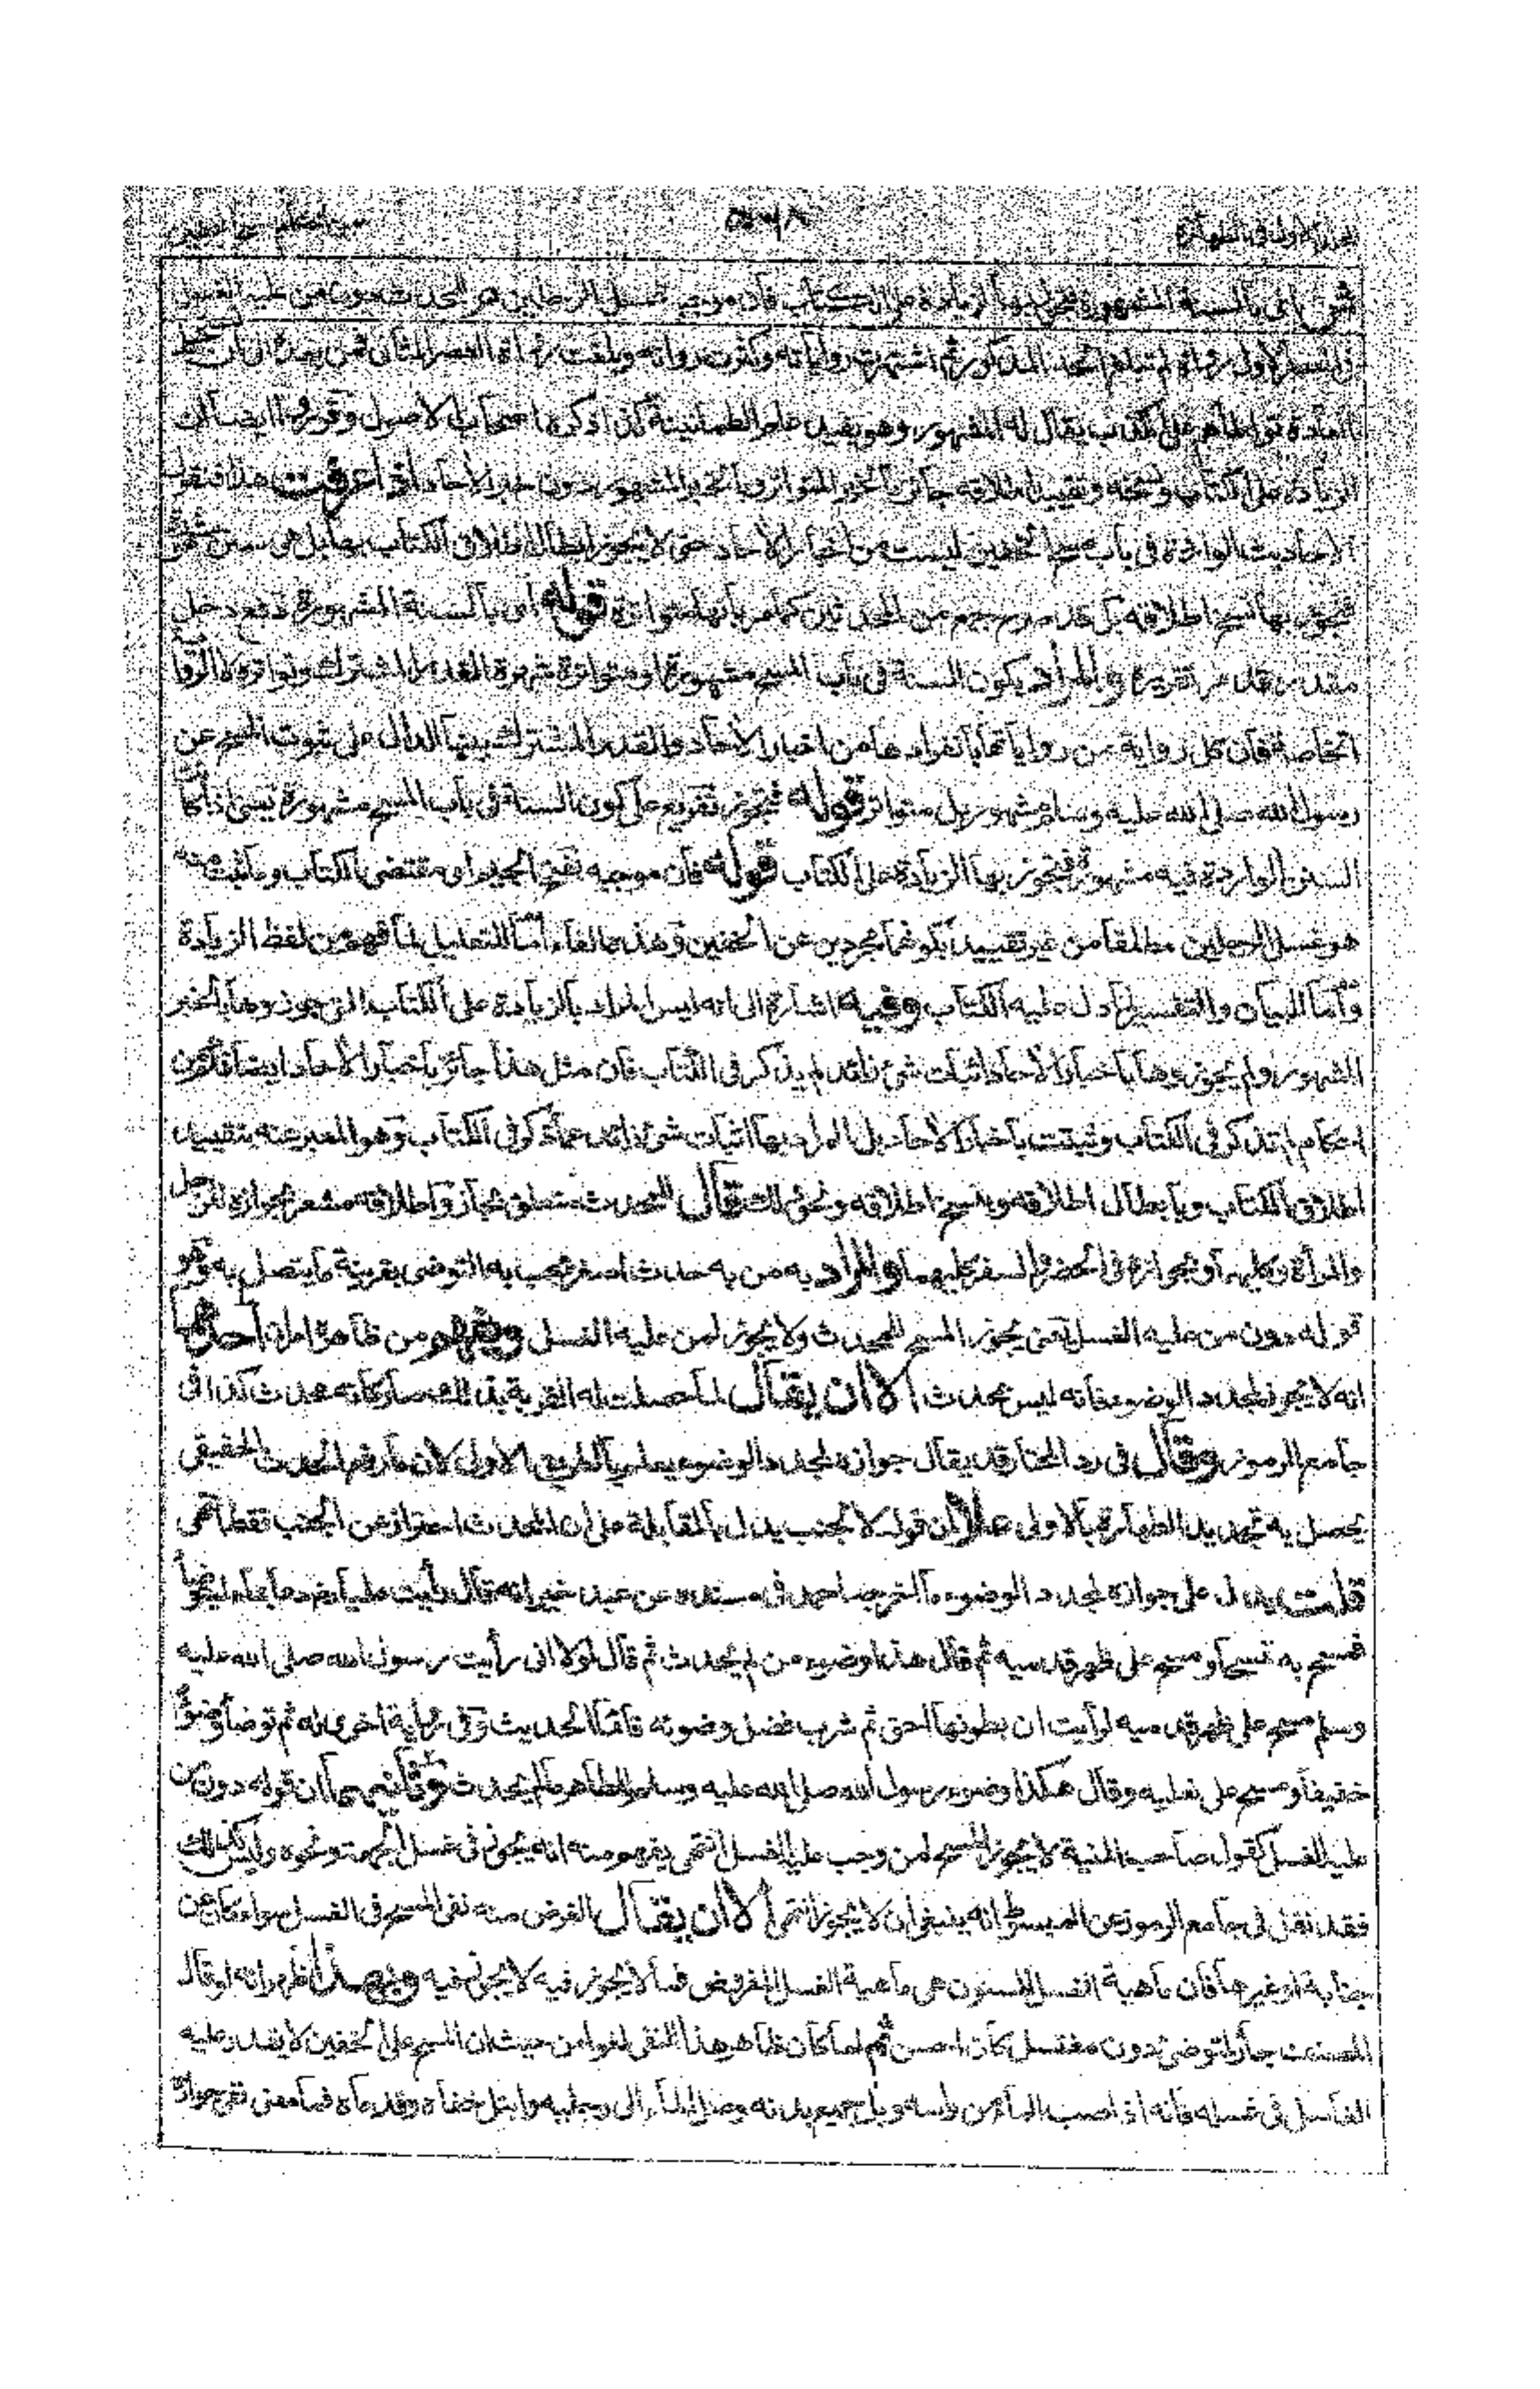 ش اى بالسنة المشهورة فتجوز بها الزيادة على الكتاب فان موجبه غسل الرجلين هو للمحدث دون من عليه الغسل
فى العصر الاول رواة لم تبلغ الحد المذكور ثم اشتهرت رواياته وكثرت رواته وبلغت رواة العصر الثانى فمن بعده الى ان
العادة تواطأهم على الكذب يقال له المشهور وهو يفيد علم الطمانينة كذا ذكره اصحاب الاصول وقرروا ايضا ان
الزيادة على الكتاب ونسخه وتقييد اطلاقه جائز بالخبر المتواتر وبالخبر المشهور دون خبر الآحاد اذا عرفت هذا فنقول
الاحاديث الواردة فى باب مسح الخفين ليست من اخبار الآحاد حتى لا يجوز ابطال اطلاق الكتاب بها بل هى سنن
فيجوز بها نسخ اطلاقه بل قد صرح جمع من المحدثين كما مر بانها متواترة قوله اى بالسنة المشهورة دفع دخل
مقدر قد مر تقريره والمراد بكون السنة فى باب المسح مشهورة او متواترة شهرة القدر المشترك وتواتره لا
الخاصة فان كل رواية من رواياتها بانفرادها من اخبار الآحاد والقدر المشترك بينها الدال على ثبوت المسح عن
رسول الله صلى الله عليه وسلم مشهور بل متواتر قوله فتجوز تفريع على كون السنة فى باب المسح مشهورة يعنى اذا كانت
السنن الواردة فيه مشهورة فتجوز بها الزيادة على الكتاب قوله فان موجبه بفتح الجيم اى مقتضى الكتاب وما ثبت منه
هو غسل الرجلين مطلقا من غير تقييد بكونهما مجردين عن الخفين وهذه الفاء اما للتعليل لما فهم من لفظ الزيادة
واما للبيان والتفسير لما دل عليه الكتاب وفيه اشارة الى انه ليس المراد بالزيادة على الكتاب التى جوزوها بالخبر
المشهور ولم يجوزوها باخبار الآحاد اثبات شئ زائد لم يذكر فى الكتاب فان مثل هذا جائز باخبار الآحاد ايضا فكم من
احكام لم تذكر فى الكتاب وثبتت باخبار الآحاد بل المراد بها اثبات شئ زائد عما ذكر فى الكتاب وهو المعبر عنه بتقييد
اطلاق الكتاب وبابطال اطلاقه وبنسخ اطلاقه ونحو ذلك قال للمحدث متعلق بجاز واطلاقه مشعر بجوازه للرجل
والمرأة وكليهما وبجوازه فى الحضر والسفر كليهما والمراد به من به حدث اصغر يجب به التوضى بقرينة ما يتصل به وهو
قوله دون من عليه الغسل يعنى يجوز المسح للمحدث ولا يجوز لمن عليه الغسل وفهم من ظاهره امران احدهما
انه لا يجوز لمجدد الوضوء فانه ليس بمحدث الا ان يقال لما حصلت له القربة بذلك صار كانه محدث كذا فى
جامع الرموز وقال فى رد المحتار قد يقال جوازه لمجدد الوضوء يعلم بالطريق الاولى لان ما رفع الحدث الحقيقى
يحصل به تجديد الطهارة بالاولى على ان قوله لا لجنب يدل بالمقابلة على ان المحدث احتراز عن الجنب فقط انتهى
قلت يدل على جوازه لمجدد الوضوء ما اخرجه احمد فى مسنده عن عبد خير انه قال رأيت عليا رض دعا بماء ليتوضأ
فمسح به تمسحا ومسح على ظهر قدميه ثم قال هذا وضوء من لم يحدث ثم قال لولا انى رأيت رسول الله صلى الله عليه
وسلم مسح على ظهر قدميه لرأيت ان بطونها احق ثم شرب فضل وضوئه قائما الحديث وفى رواية اخرى له ثم توضأ وضوءا
خفيفا ومسح على نعليه وقال هكذا وضوء رسول الله صلى الله عليه وسلم للطاهر ما لم يحدث وثانيهما ان قوله دون من
عليه الغسل كقول صاحب المنية لا يجوز المسح لمن وجب عليه الغسل انتهى يفهم منه انه يجوز فى غسل الجمعة ونحوه وليس كذلك
فقد نقل فى جامع الرموز عن المبسوط انه ينبغى ان لا يجوز انتهى الا ان يقال الغرض منه نفى المسح فى الغسل سواء كان عن
جنابة او غيرها فان ماهية الغسل المسنون هى ماهية الغسل المفروض فما لا يجوز فيه لا يجوز فيه وبهذا ظهر انه لو قال
المصنف جاز لمتوضئ دون مغتسل كان احسن ثم لما كان ظاهر هذا النفى لغوا من حيث ان المسح على الخفين لا يقدر عليه
الغاسل فى غسله فانه اذا صب الماء من راسه وبل جميع بدنه وصل الماء الى رجليه وابتل خفاه وقدماه فما معنى نفى جوازه